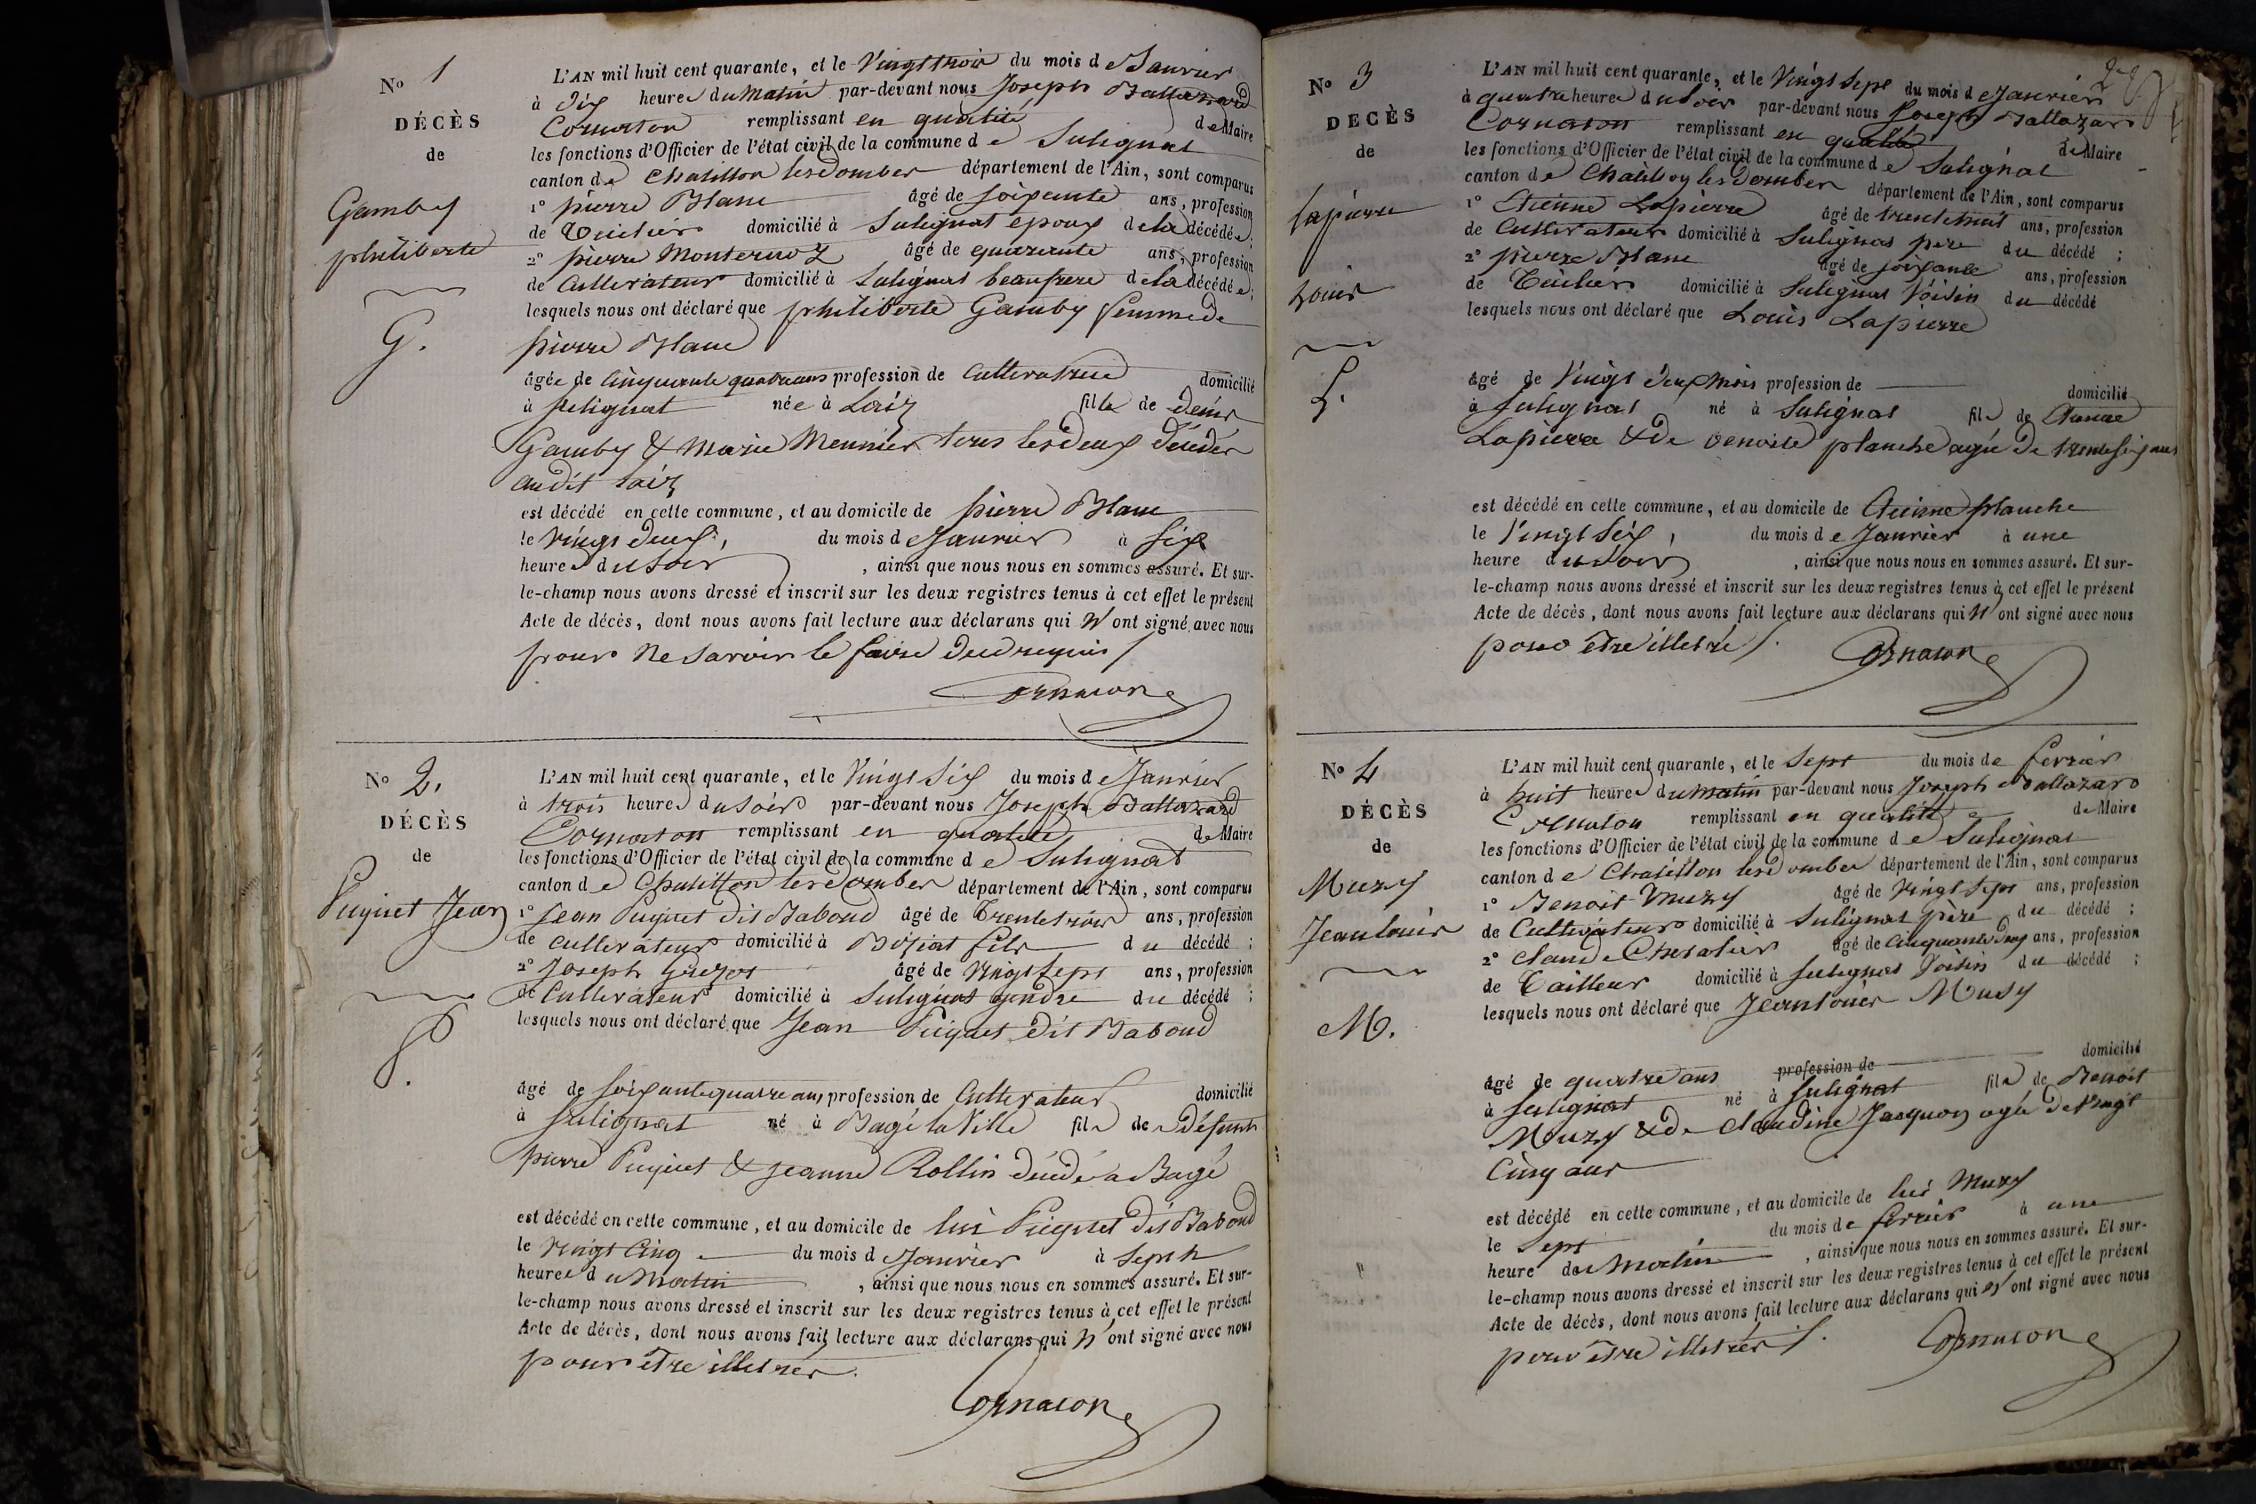 No 1
DÉCÈS
de
Gamby
philiberte
G.
L'AN mil huit cent quarante, et le Vingt trois du mois de Janvier
à Dix heures du Matin par-devant nous Joseph Baltazard
Cornaton remplissant en qualité de Maire
les fonctions d'Officier de l'état civil de la commune de Sulignat
canton de Chatillon les Dombes département de l'Ain, sont comparus
1° pierre Blanc âgé de soixante ans, profession
de Tuilier domicilié à Sulignat epoux de la décédée;
2° pierre Monternoz âgé de quarante ans, profession
de Cultivateur domicilié à Sulignat beaufrere de la décédée;
lesquels nous ont déclaré que philiberte Gamby femme de
pierre Blanc
âgée de Cinquante quatre ans profession de Cultivatrice domicilié
à Sulignat née à Laiz fille de Denis
Gamby & Marie Meunier tous les deux décédés
audit Laiz
est décédé en cette commune, et au domicile de pierre Blanc
le Vingt deux, du mois de Janvier à Six
heures du Soir, ainsi que nous nous en sommes assuré. Et sur-
le-champ nous avons dressé et inscrit sur les deux registres tenus à cet effet le présent
Acte de décès, dont nous avons fait lecture aux déclarans qui N'ont signé avec nous
pour Ne savoir le faire de ce requis
Cornaton
No 2.
DÉCÈS
de
Puguet Jean
P.
L'AN mil huit cent quarante, et le Vingt Six du mois de Janvier
à trois heures du Soir par-devant nous Joseph Baltazard
Cornaton remplissant en qualité de Maire
les fonctions d'Officier de l'état civil de la commune de Sulignat
canton de Chatillon les Dombes département de l'Ain, sont comparus
1° Jean Puguet dit Baboud âgé de Trente trois ans, profession
de cultivateur domicilié à fils du décédé;
2° Joseph âgé de Vingt Sept ans, profession
de Cultivateur domicilié à Sulignat gendre du décédé;
lesquels nous ont déclaré que Jean Puguet dit Baboud
âgé de Soixante quatre ans profession de Cultivateur domicilié
à Sulignat né à Bagé la Ville fils de Défunts
pierre Puguet & Jeanne Rollin décédés a Bagé
est décédé en cette commune, et au domicile de lui Puguet dit Baboud
le Vingt Cinq du mois de Janvier à Sept
heures du Matin, ainsi que nous nous en sommes assuré. Et sur-
le-champ nous avons dressé et inscrit sur les deux registres tenus à cet effet le présent
Acte de décès, dont nous avons fait lecture aux déclarans qui N'ont signé avec nous
pour être illetrés.
Cornaton
No 3
DÉCÈS
de
Lapierre
Louis
L.
L'AN mil huit cent quarante, et le Vingt Sept du mois de Janvier
à quatre heures du Soir par-devant nous Joseph Baltazard
Cornaton remplissant en qualité de Maire
les fonctions d'Officier de l'état civil de la commune de Sulignat
canton de Chatillon les Dombes département de l'Ain, sont comparus
1° Etienne Lapierre âgé de trente huit ans, profession
de Cultivateur domicilié à Sulignat père du décédé;
2° pierre Blanc âgé de soixante ans, profession
de Tuilier domicilié à Sulignat Voisin du décédé
lesquels nous ont déclaré que Louis Lapierre
âgé de Vingt deux Mois profession de domicilié
à Sulignat né à Sulignat fils de Etienne
Lapierre & de benoite planche agée de trente six ans
est décédé en cette commune, et au domicile de Etienne planche
le Vingt Six, du mois de Janvier à une
heure du Soir, ainsi que nous nous en sommes assuré. Et sur-
le-champ nous avons dressé et inscrit sur les deux registres tenus à cet effet le présent
Acte de décès, dont nous avons fait lecture aux déclarans qui N'ont signé avec nous
pour être illetré.
Cornaton
No 4
DÉCÈS
de
Muzy
Jean louis
M.
L'AN mil huit cent quarante, et le Sept du mois de fevrier
à huit heures du matin par-devant nous Joseph Baltazard
Cornaton remplissant en qualité de Maire
les fonctions d'Officier de l'état civil de la commune de Sulignat
canton de Chatillon les Dombes département de l'Ain, sont comparus
1° Benoit Muzy âgé de Vingt Sept ans, profession
de Cultivateur domicilié à Sulignat père du décédé;
2° Claude Chevalier âgé de Cinquante ans, profession
de Tailleur domicilié à Sulignat Voisin du décédé;
lesquels nous ont déclaré que Jean louis Musy
âgé de quatre ans profession de domicilié
à Sulignat né à Sulignat fils de Benoit
Muzy & de Claudine Jacquon agée de Vingt
Cinq ans
est décédé en cette commune, et au domicile de lui Muzy
le Sept du mois de fevrier à une
heure du Matin, ainsi que nous nous en sommes assuré. Et sur-
le-champ nous avons dressé et inscrit sur les deux registres tenus à cet effet le présent
Acte de décès, dont nous avons fait lecture aux déclarans qui N'ont signé avec nous
pour être illetrés.
Cornaton